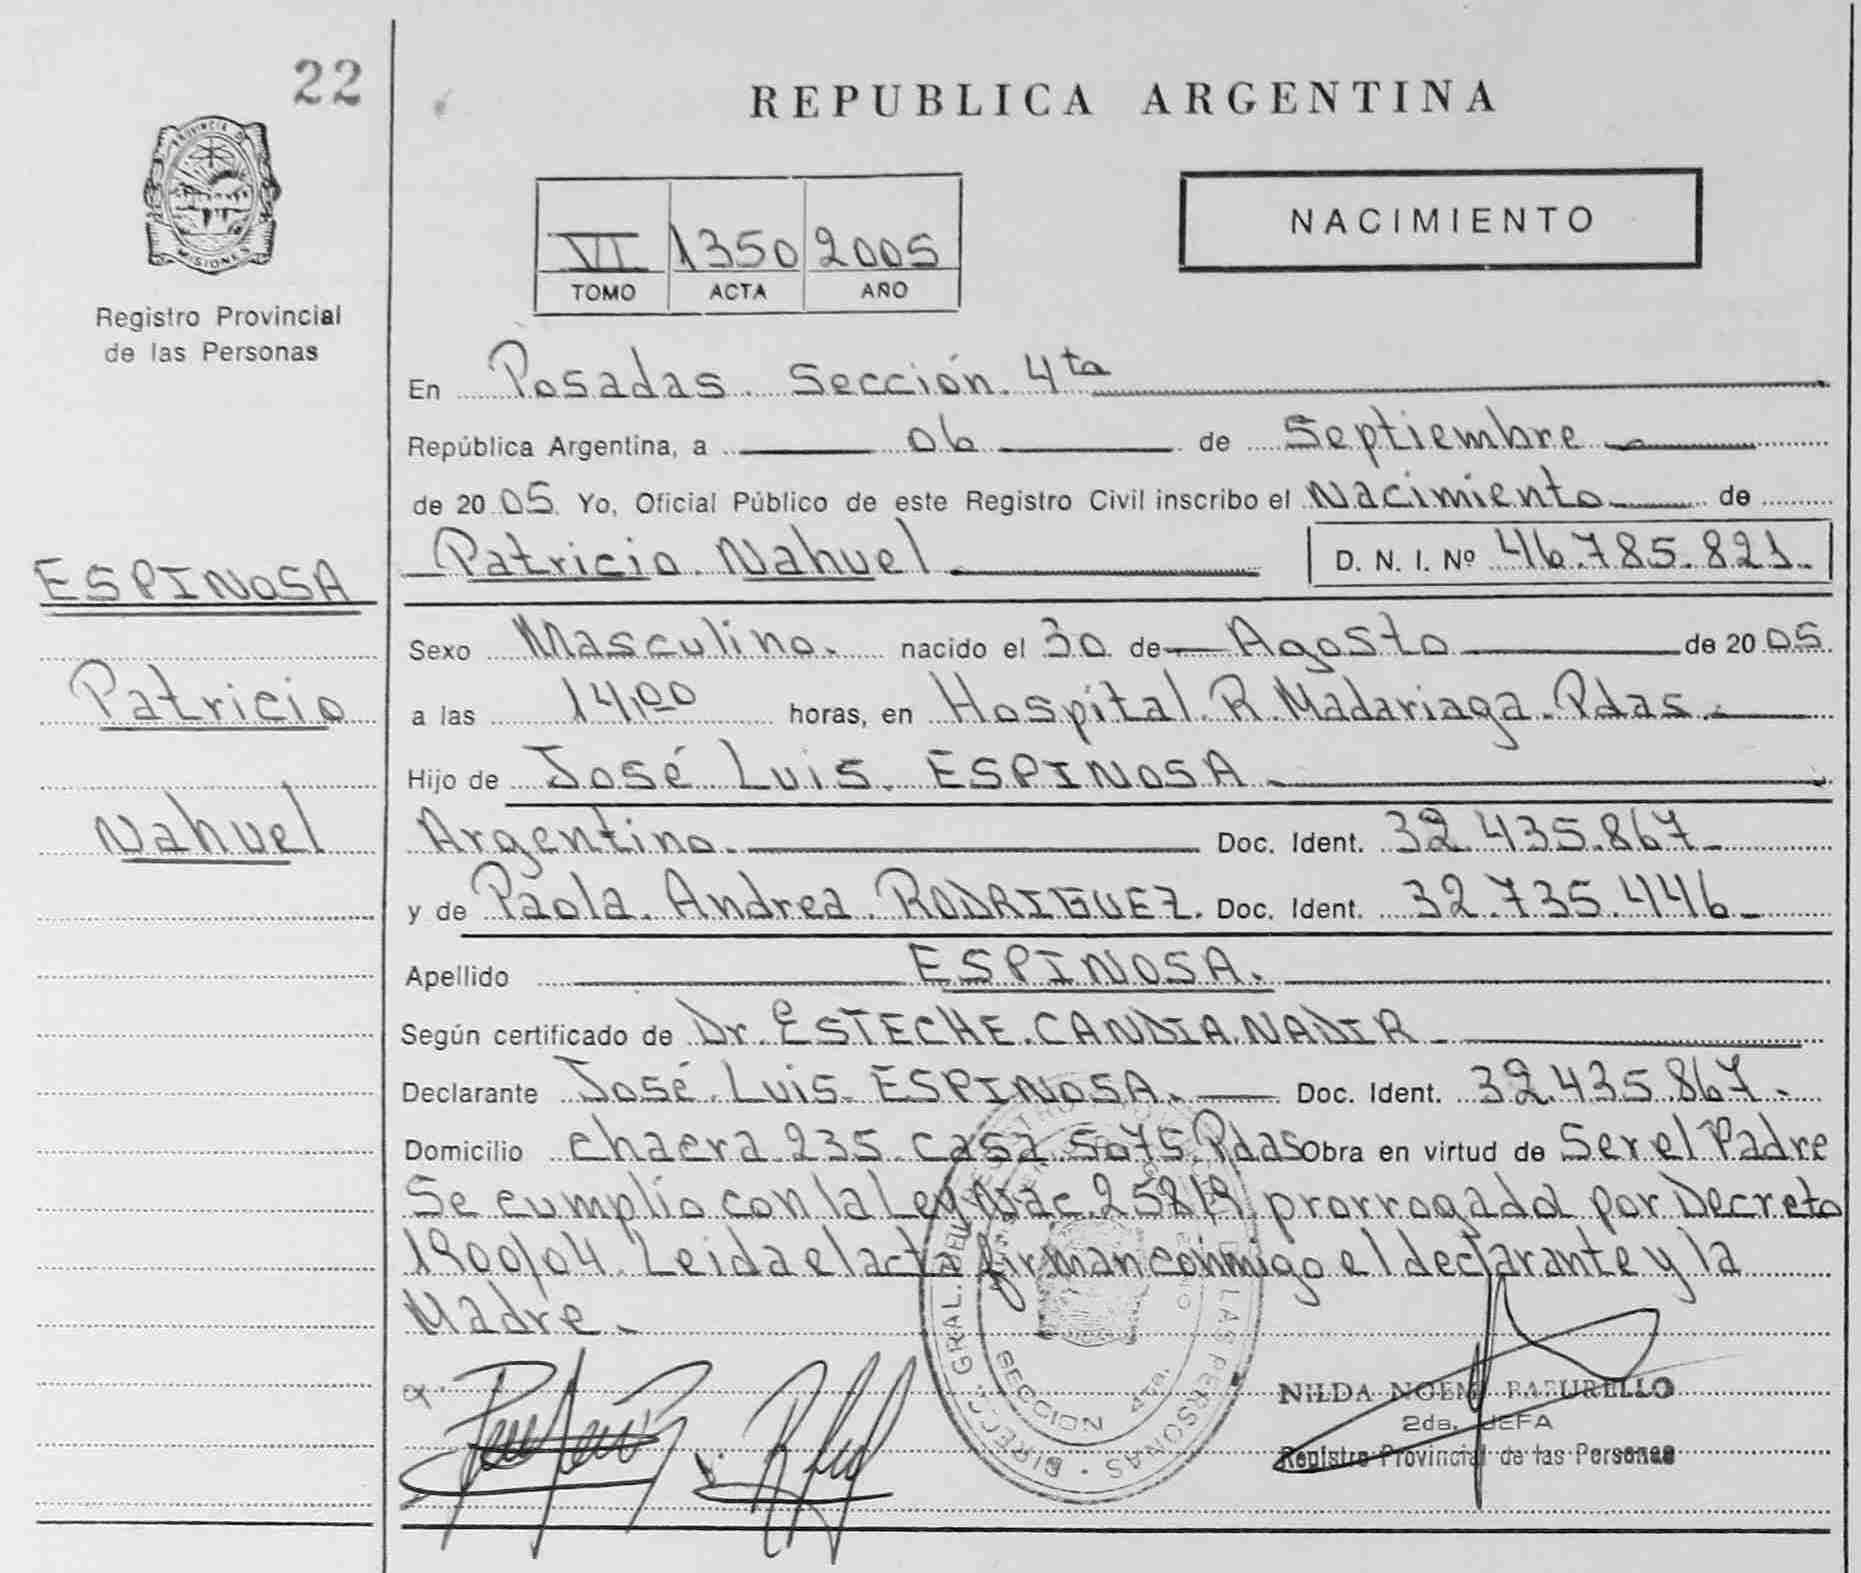 22
PROVINCIA DE
MISIONES
Registro Provincial
de las Personas
ESPINOSA
Patricio
Nahuel
REPUBLICA ARGENTINA
VI 1350 2005
TOMO ACTA AÑO
NACIMIENTO
En Posadas Sección 4ta
República Argentina, a 06 de Septiembre
de 2005 Yo, Oficial Público de este Registro Civil inscribo el Nacimiento de
Patricio Nahuel D. N. I. Nº 46.785.821.
Sexo Masculino. nacido el 30 de Agosto de 2005.
a las 14,00 horas, en Hospital R. Madariaga. Pdas.
Hijo de José Luis ESPINOSA
Argentino. Doc. Ident. 32.435.867
y de Paola Andrea RODRIGUEZ. Doc. Ident. 32.735.446
Apellido ESPINOSA.
Según certificado de Dr. ESTECHE CANDIA NADIR
Declarante José Luis ESPINOSA. Doc. Ident. 32.435.867.
Domicilio chacra 235 casa 5075 Pdas Obra en virtud de Ser el Padre
Se cumplio con la Ley Nac. 25819 prorrogada por Decreto
1900/04. Leida el acta firman conmigo el declarante y la
Madre.
DIRECC. GRAL. DE LAS PERSONAS
SECCION 4ta.
NILDA NOEMI
2da. JEFA
Registro Provincial de las Personas